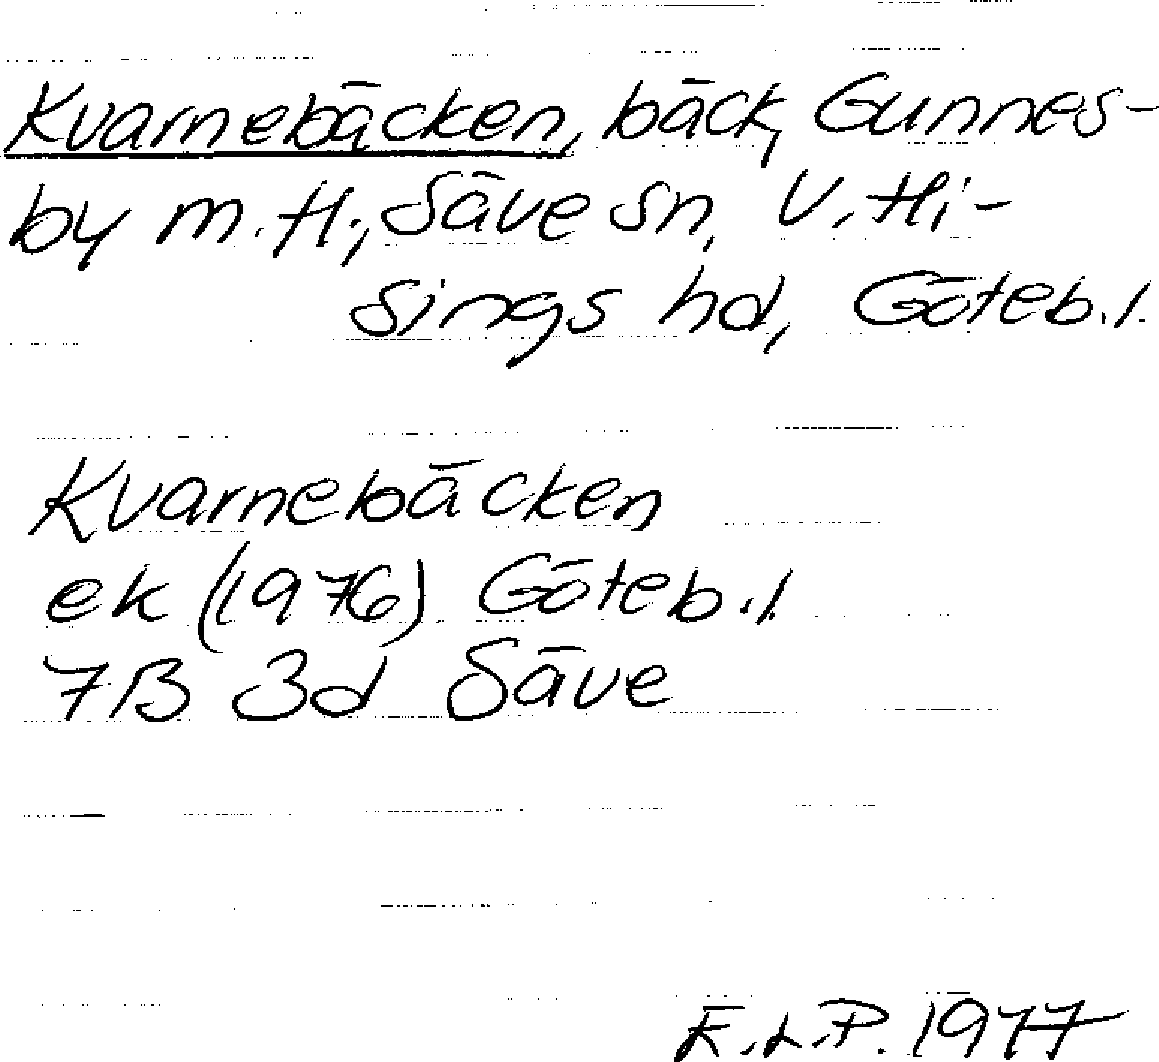 Kvarnebäcken, bäck, Gunnes-
by m. fl., Säve sn, V. Hi-
sings hd, Göteb.l.
Kvarnebäcken
ek (1976) Göteb.l.
7B 3d Säve
E.L.P. 1977